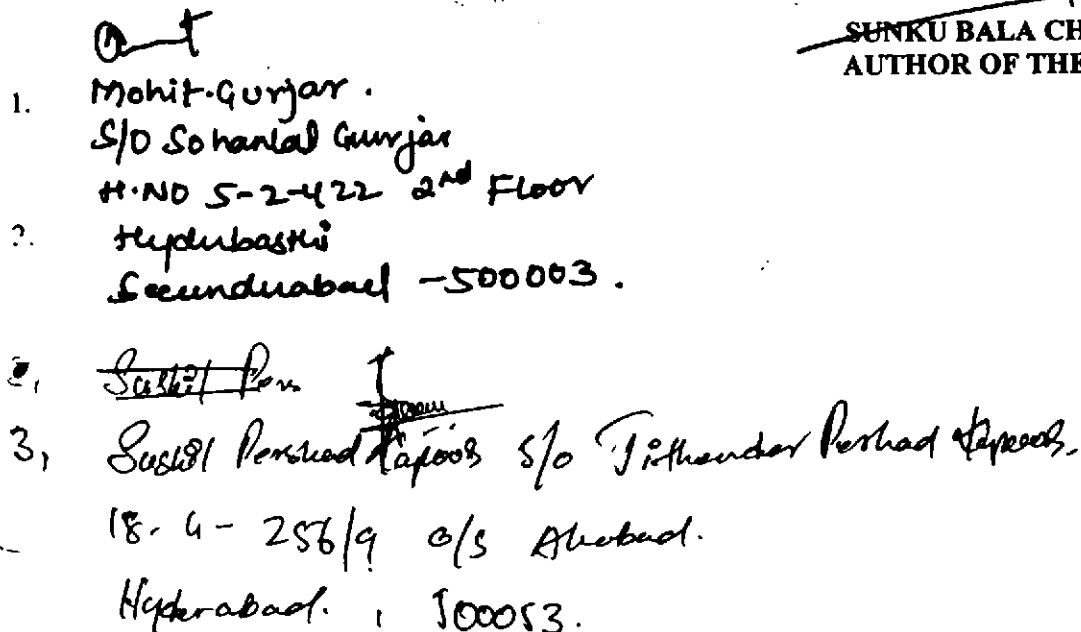 SUNKU BALA CH
AUTHOR OF THE
1. Mohit.Gurjar.
S/O Sohanlal Gurjar
H.NO 5-2-422 2nd Floor
2. Hyderbasthi
Secunderabad -500003.
2, Sushil Per
3, Sushil Pershad Kapoor S/o Jithender Pershad Kapoor.
18-4-256/9 o/s Aliabad.
Hyderabad. , 500053.